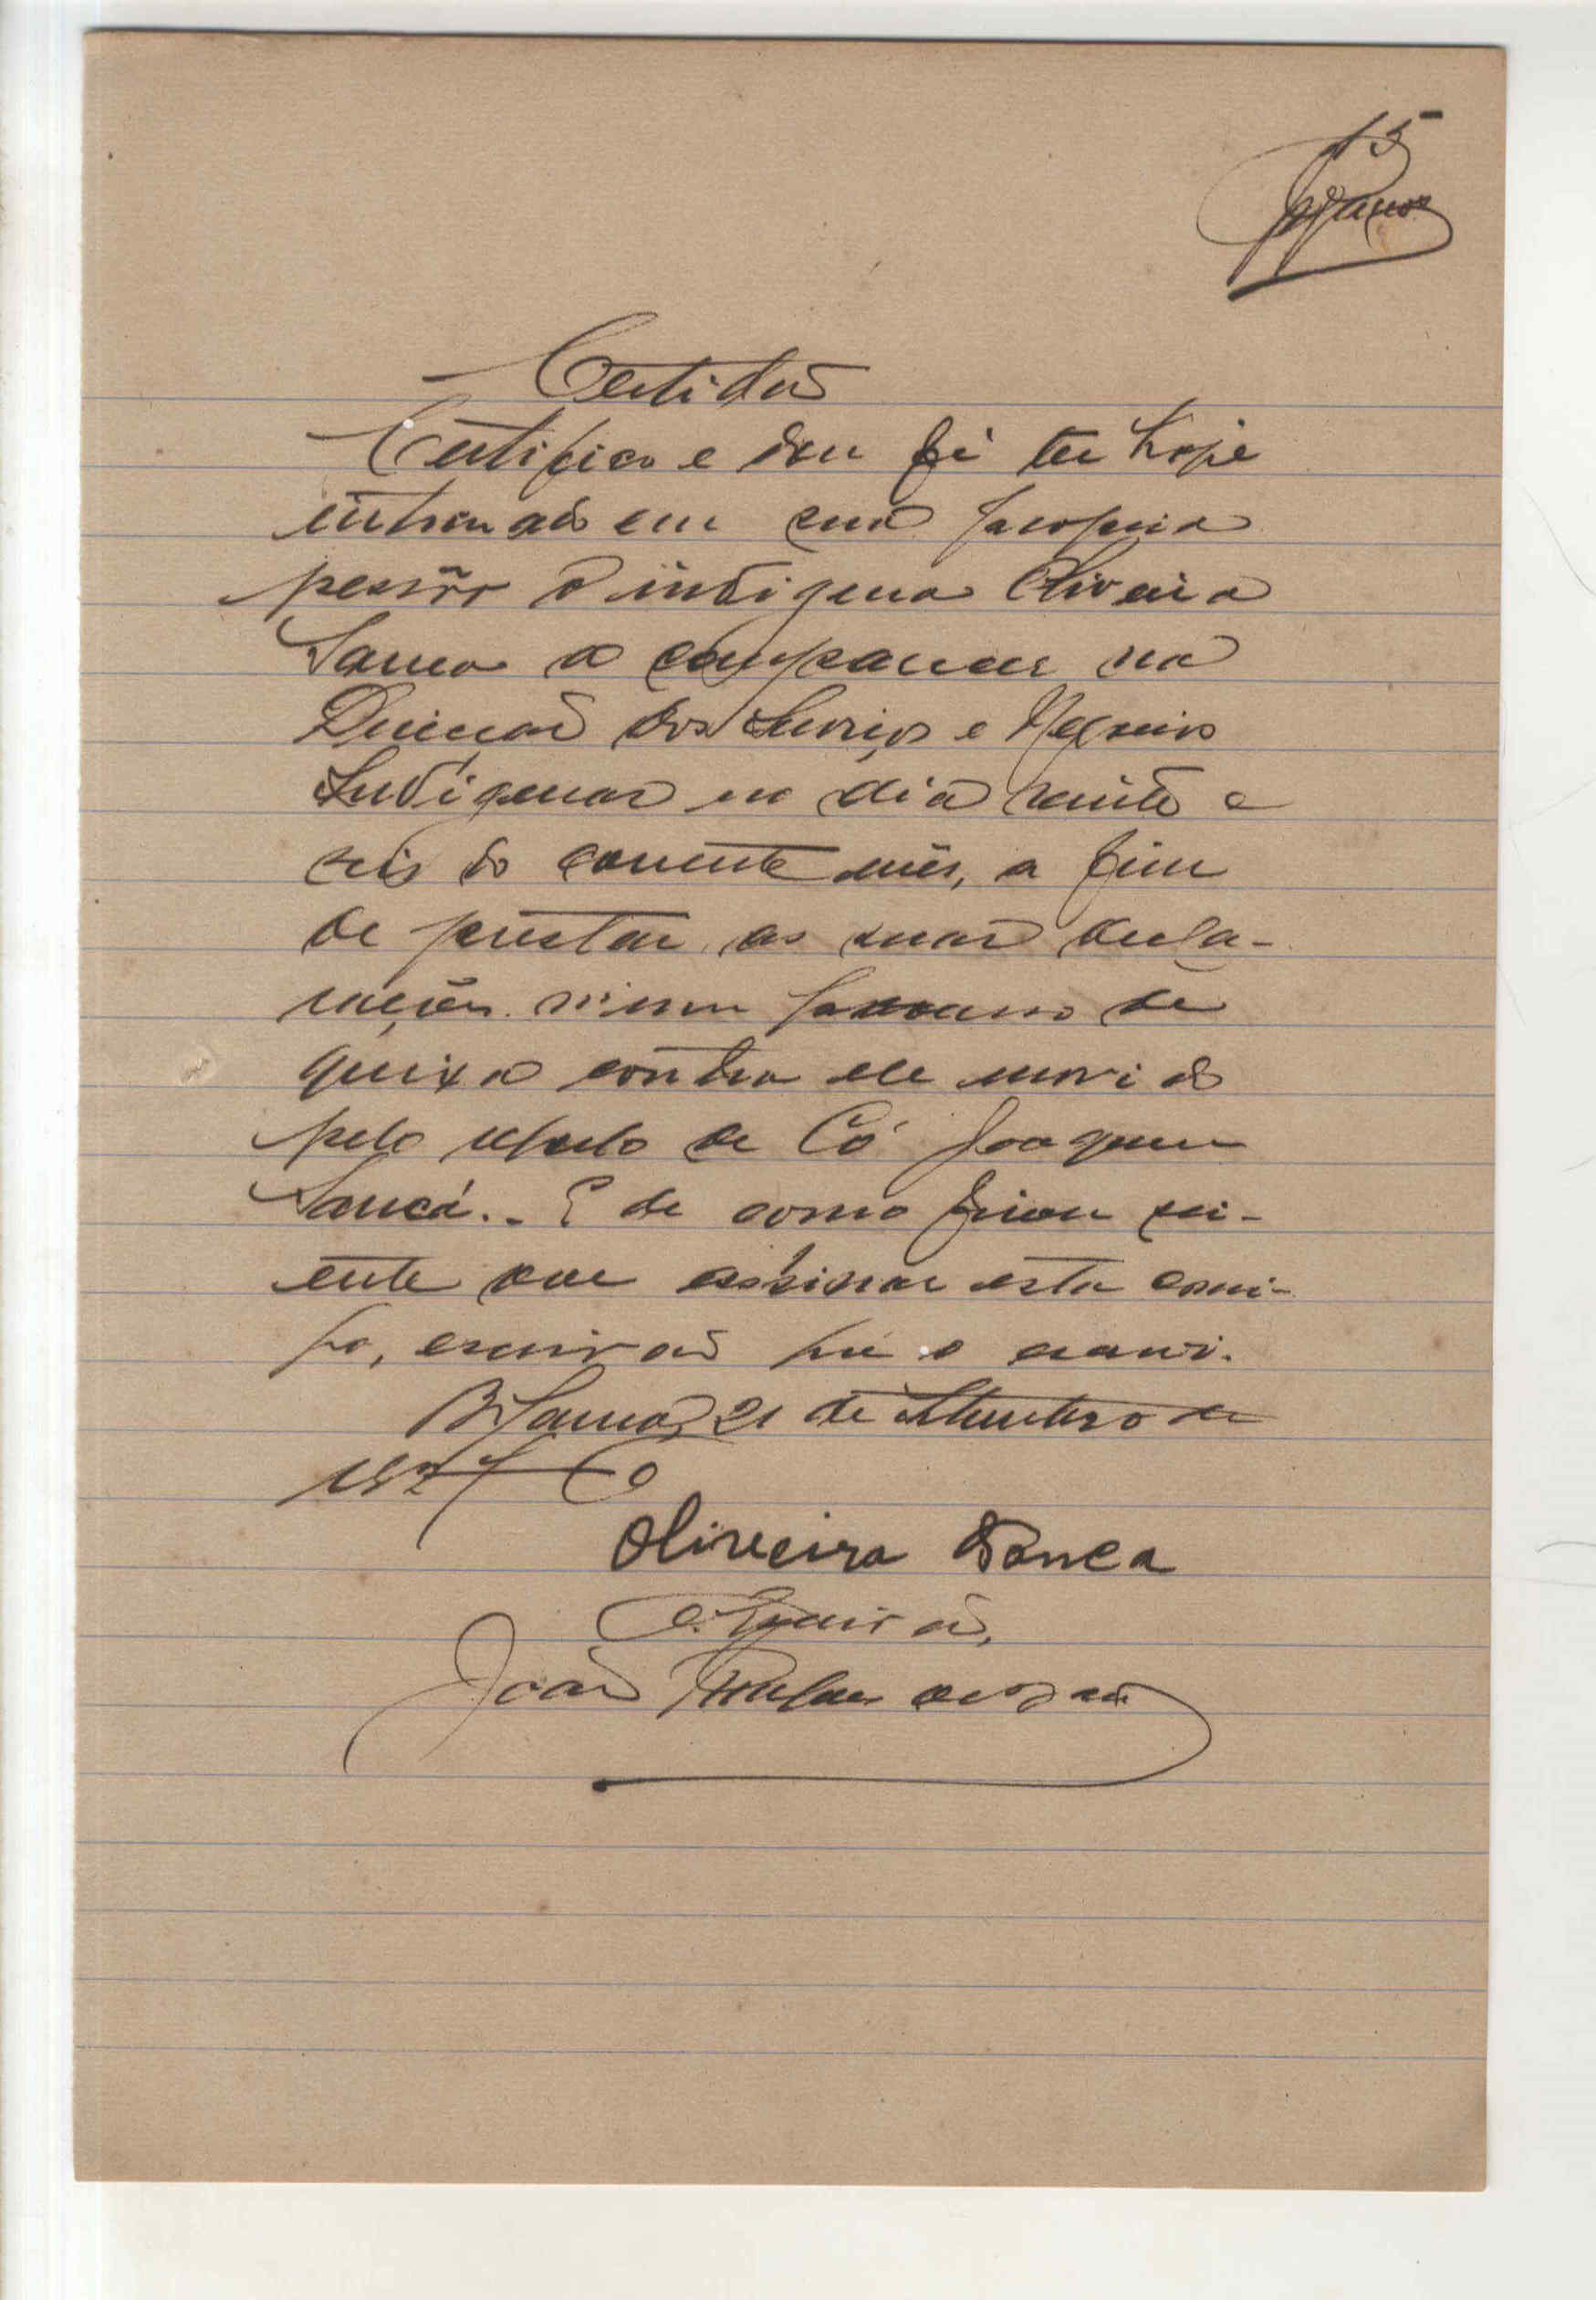 15
Certidão
Certifico e dou fé ter hoje
intimado em sua propria
pessôa o indigena Oliveira
Sanca a comparecer na
Direcção dos Serviços e Negocios
Indígenas no dia vinte e
seis do corrente mês, a fim
de prestar as suas decla-
rações n'um processo de
queixa contra ele movido
pelo regulo de Có Joaquim
Sancá.. E de como ficou ci-
ente vae assinar esta comi-
go, escrivão que o escrevi.
Bissau, 21 de Setembro de
1927
Oliveira Sanca
O Escrivão,
João